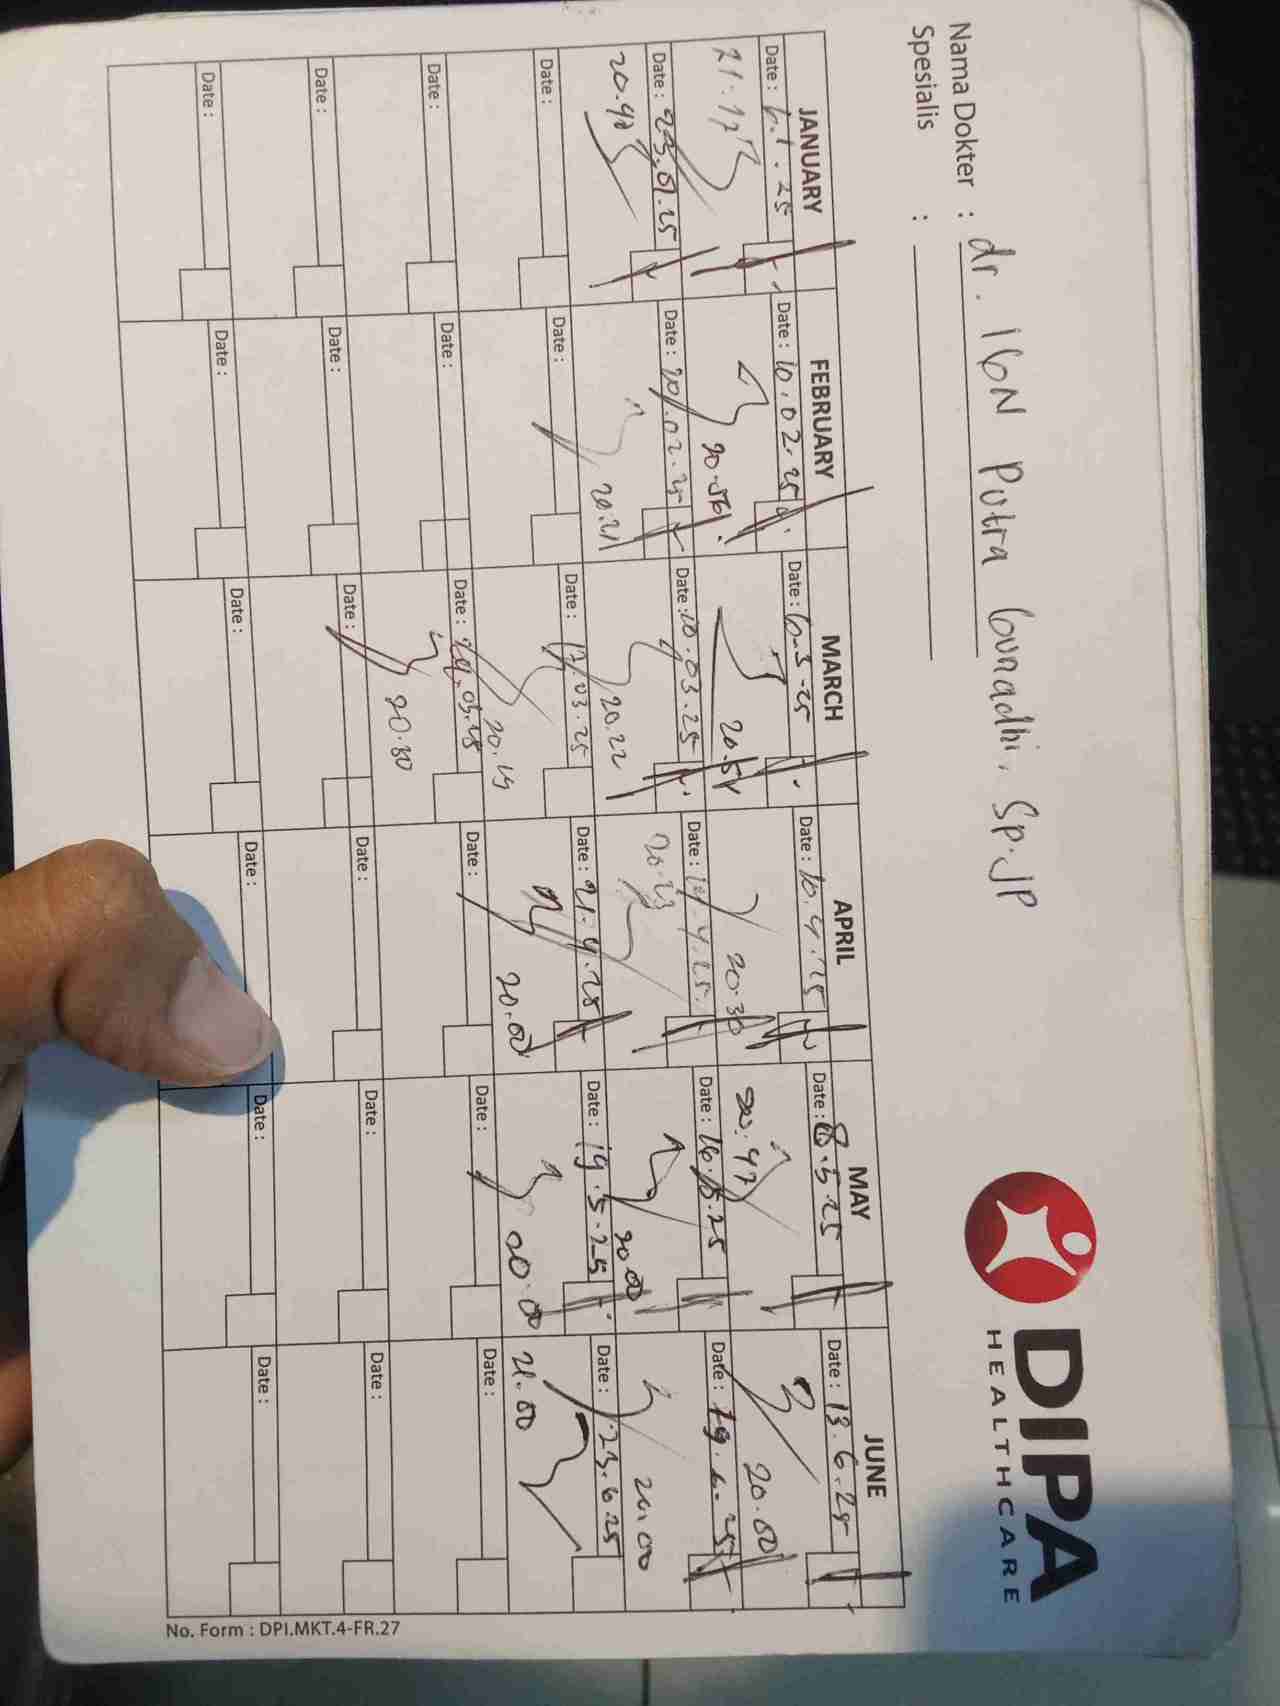 Nama Dokter : dr. IGN Putra Gunadhi, Sp.JP
Spesialis :
DIPA
HEALTHCARE
JANUARY FEBRUARY MARCH APRIL MAY JUNE
Date : 6.1.25 Date : 10.02.25 Date : 6-3-25 Date : 10.4.25 Date : 8.5.25 Date : 13.6.25
21.17 20.56 20.54 20.30 20.47 20.00
Date : 23.01.25 Date : 20.02.25 Date : 10.03.25 Date : 14.4.25 Date : 16.5.25 Date : 19.6.25
20.47 20.21 20.22 20.23 20.00 20.00
Date : Date : Date : 17.03.25 Date : 21.4.25 Date : 19.5.25 Date : 23.6.25
20.19 20.00 20.00 21.00
Date : Date : Date : 24.03.25 Date : Date : Date :
20.30
Date : Date : Date : Date : Date : Date :
Date : Date : Date : Date : Date : Date :
No. Form : DPI.MKT.4-FR.27